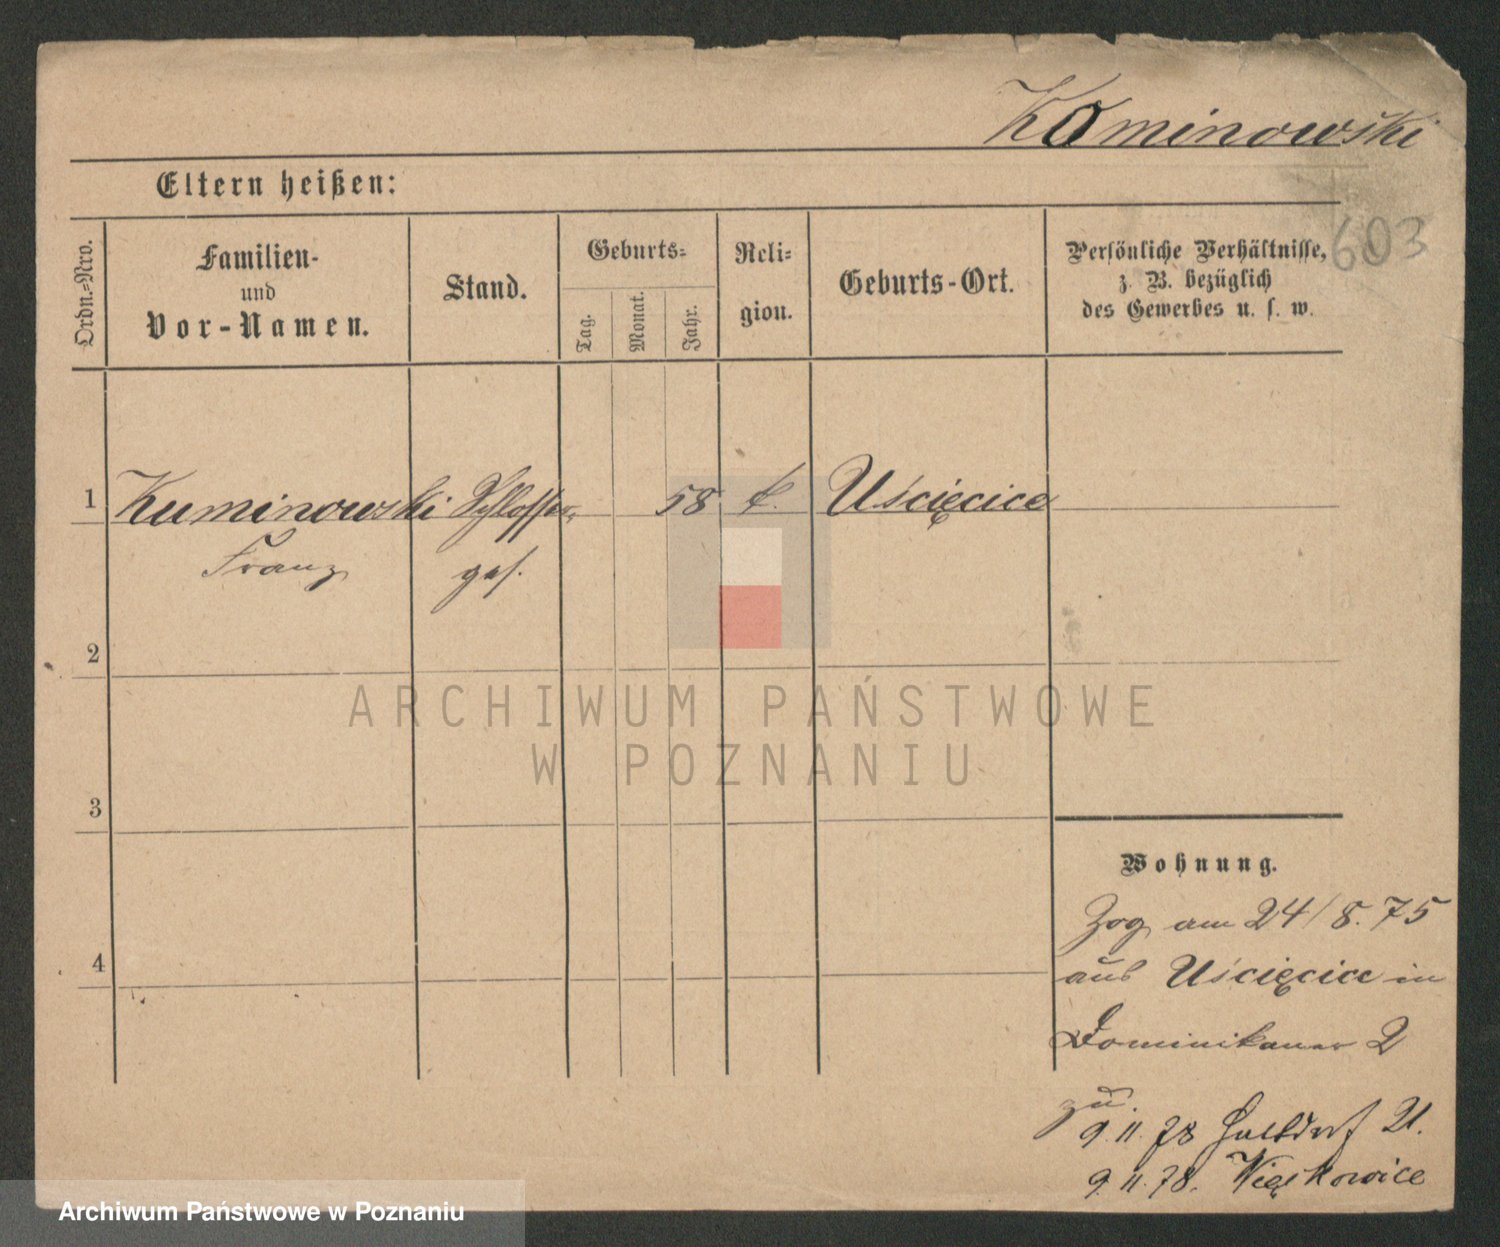 Kominowski
Eltern heißen:
603
Ordn.=Nro.
Familien-
und
Vor-Namen.
Stand.
Geburts=
Tag.
Monat.
Jahr.
Reli=
gion.
Geburts-Ort.
Persönliche Verhältnisse,
z. B. bezüglich
des Gewerbes u. s. w.
1 Kuminowski Schlosser 58 k. Uścięcice
Franz ges.
2
ARCHIWUM PAŃSTWOWE
W POZNANIU
3
Wohnung.
Zog am 24/8. 75
4
aus Uścięcice in
Dominikaner 2
zu.
9.11.78 21.
9.11.78. Więckowice
Archiwum Państwowe w Poznaniu